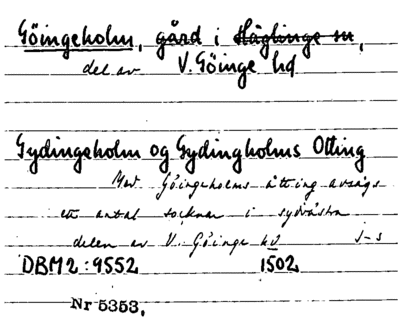 Göingeholm, gård i Häglinge sn,
del av V. Göinge hd
Gydingeholm og Gydingholms Otting
Med Göingeholms åtting avsågs
ett antal socknar i sydvästra
delen av V. Göinge hd J-s
DBM2:9552 1502
Nr 5353.